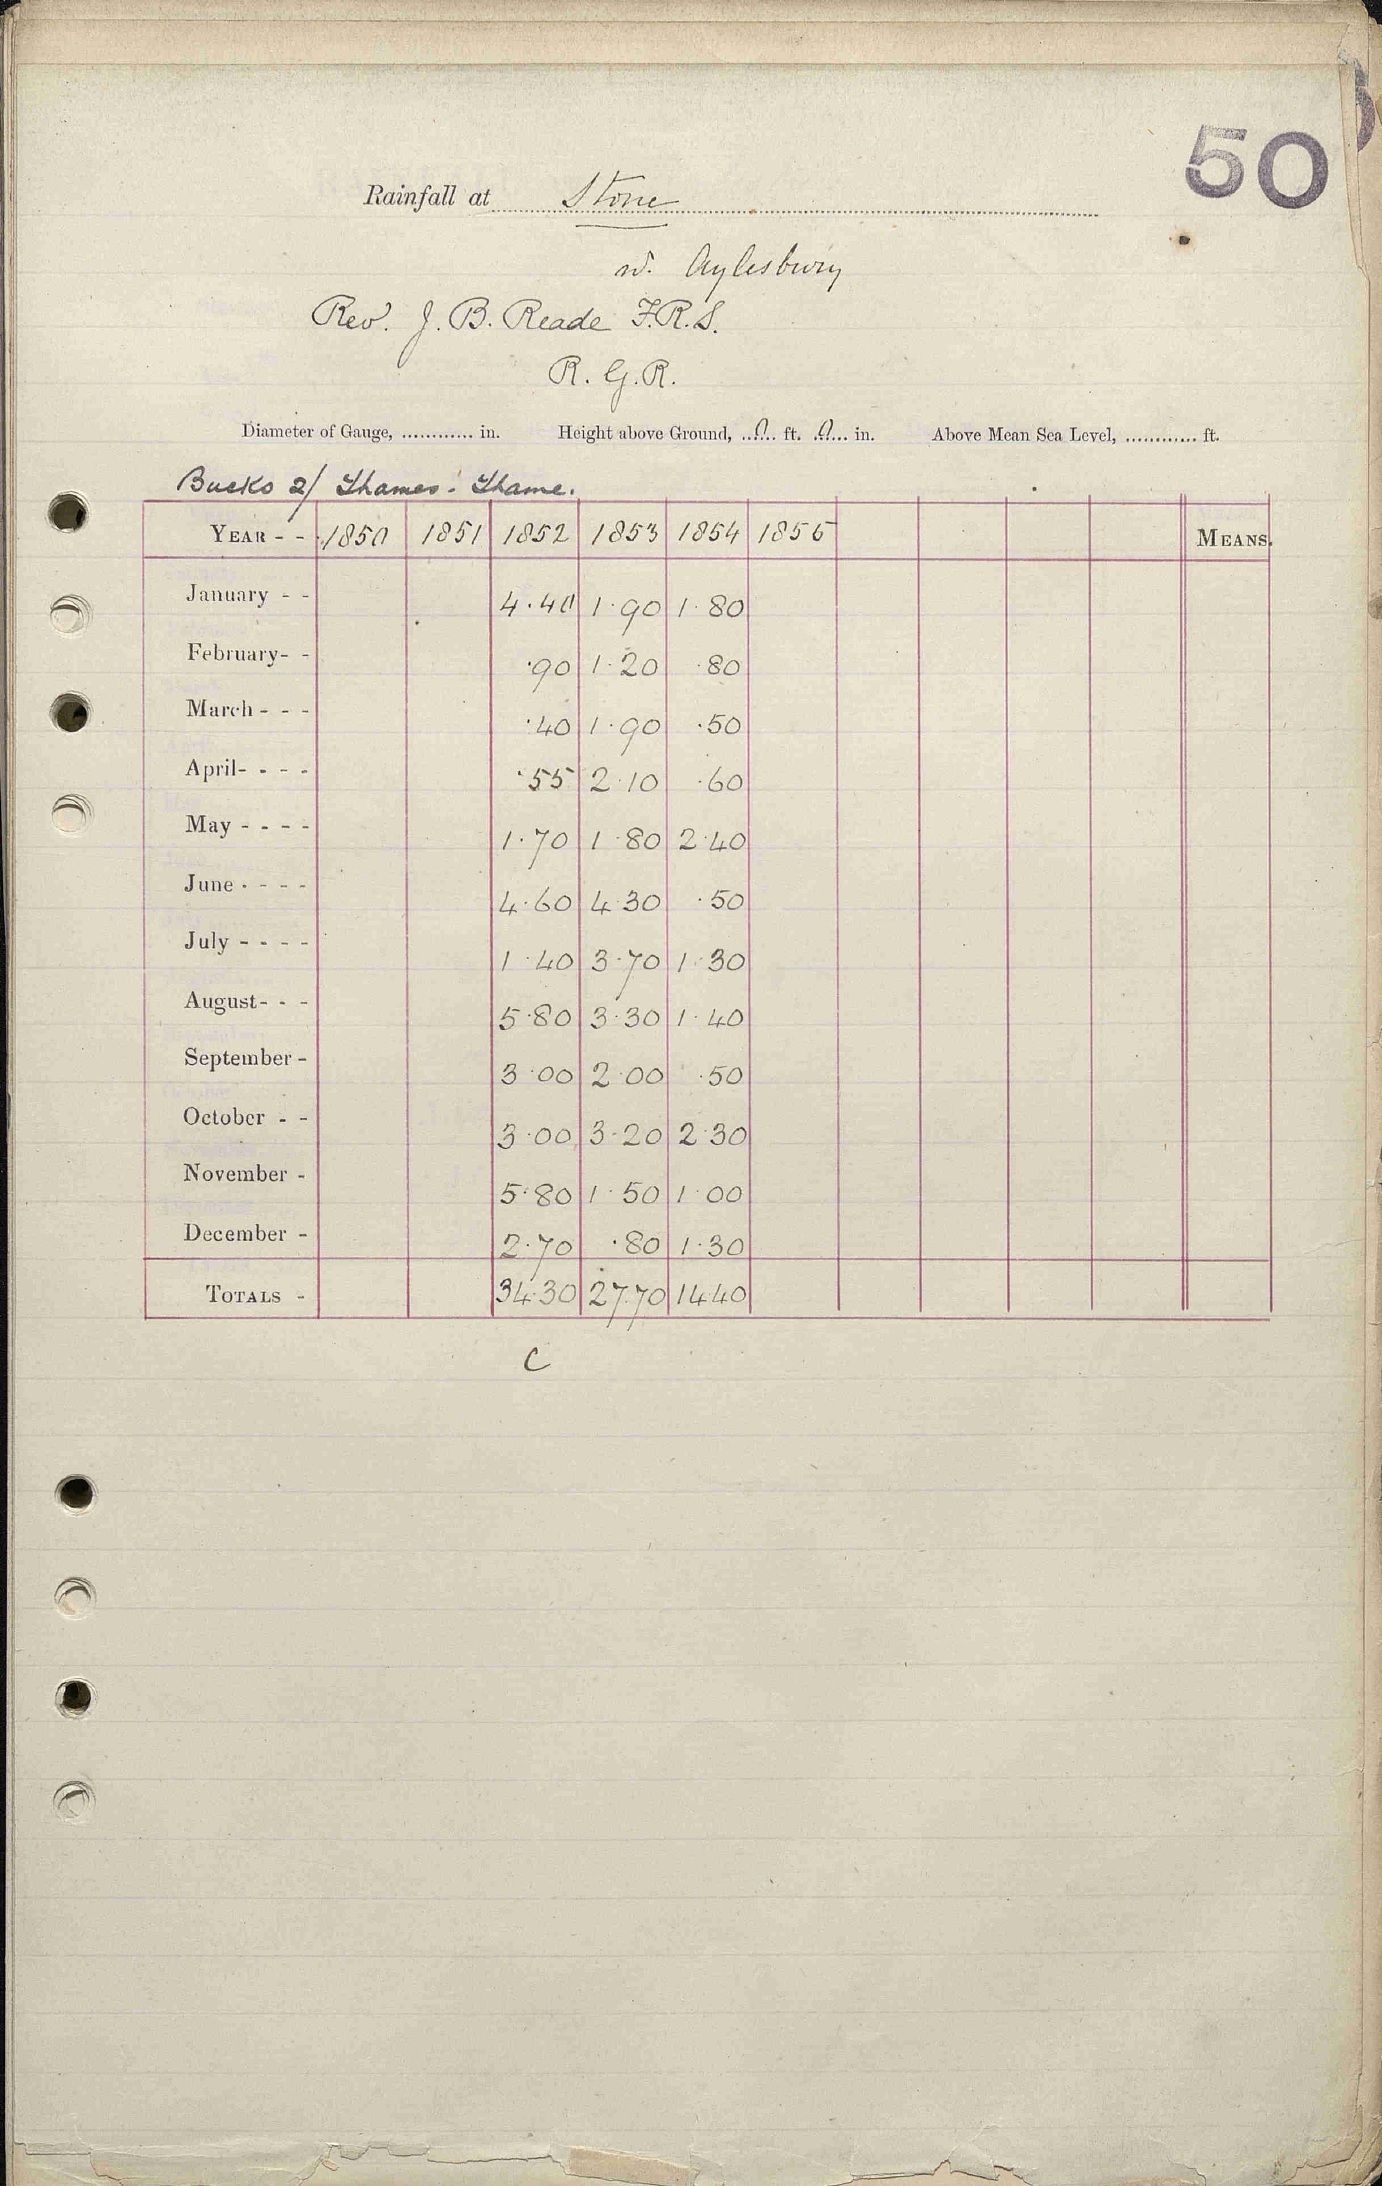 50
Rainfall at Stone
nr. Aylesbury
Rev. J. B. Reade F.R.S.
R. G. R.
Diameter of Gauge, ............ in. Height above Ground, ...0... ft. ...0... in. Above Mean Sea Level, ............ ft.
Bucks 2/ Thames : Thame.
YEAR - - 1850 1851 1852 1853 1854 1855 MEANS.
January - - 4.40 1.90 1.80
February- - .90 1.20 .80
March - - - .40 1.90 .50
April- - - - .55 2.10 .60
May - - - - 1.70 1.80 2.40
June - - - - 4.60 4.30 .50
July - - - - 1.40 3.70 1.30
August- - - 5.80 3.30 1.40
September - 3.00 2.00 .50
October - - 3.00 3.20 2.30
November - 5.80 1.50 1.00
December - 2.70 .80 1.30
TOTALS - 34.30 27.70 14.40
C